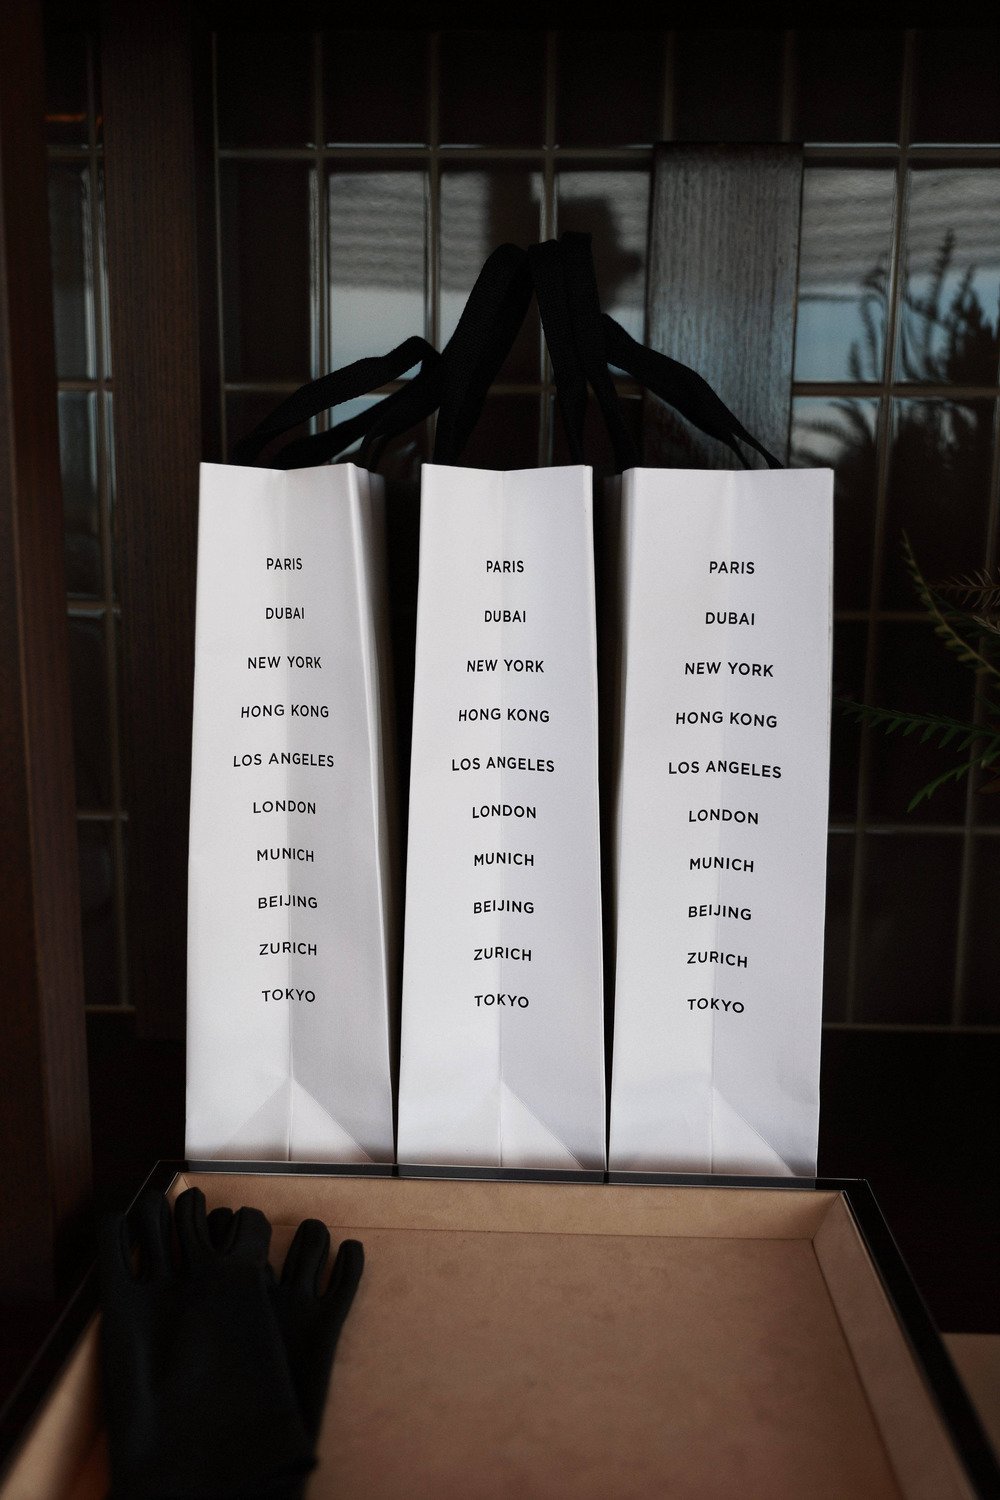 PARIS
DUBAI
NEW YORK
HONG KONG
LOS ANGELES
LONDON
MUNICH
BEIJING
ZURICH
TOKYO
PARIS
DUBAI
NEW YORK
HONG KONG
LOS ANGELES
LONDON
MUNICH
BEIJING
ZURICH
TOKYO
PARIS
DUBAI
NEW YORK
HONG KONG
LOS ANGELES
LONDON
MUNICH
BEIJING
ZURICH
TOKYO